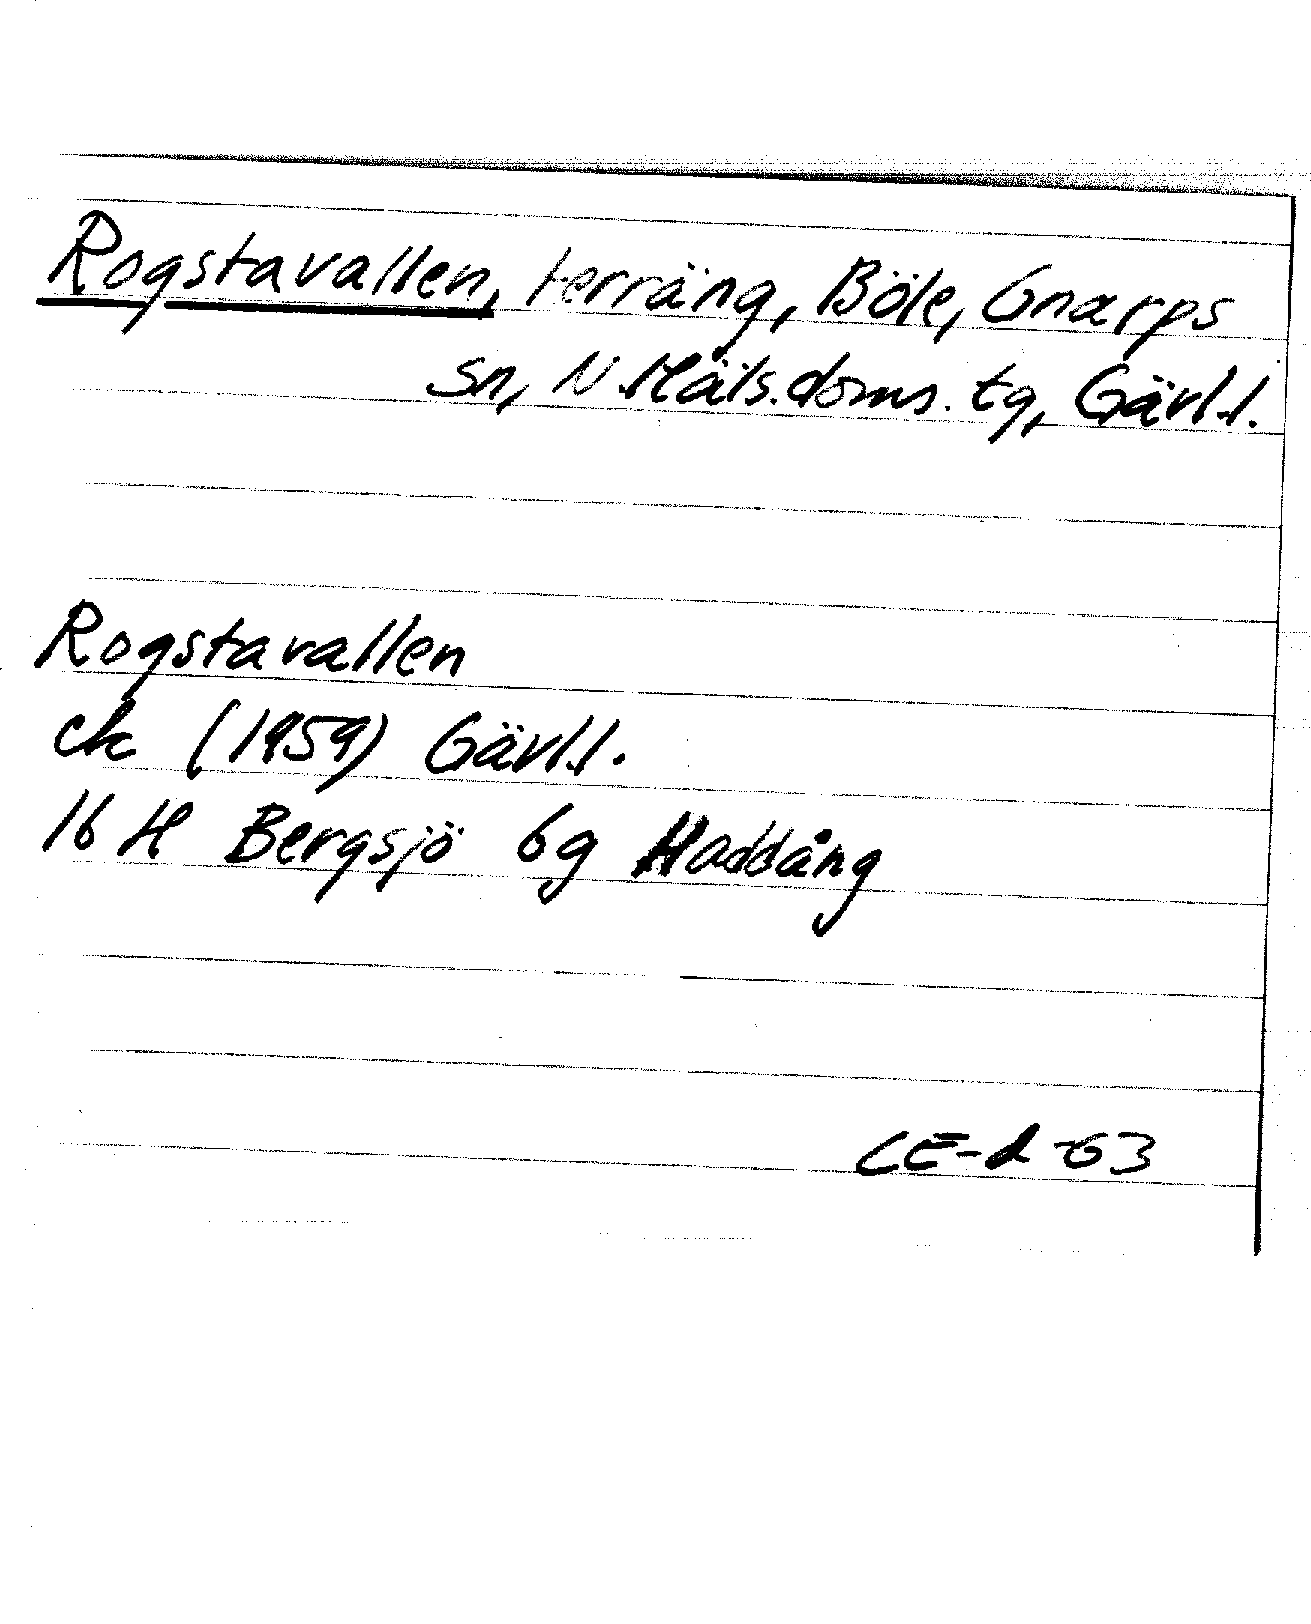 Rogstavallen, terräng, Böle, Gnarps
sn, N. Häls. doms. tg, Gävl.l.
Rogstavallen
ek (1959) Gävl.l.
16 H Bergsjö 6g Haddång
CE-d-63